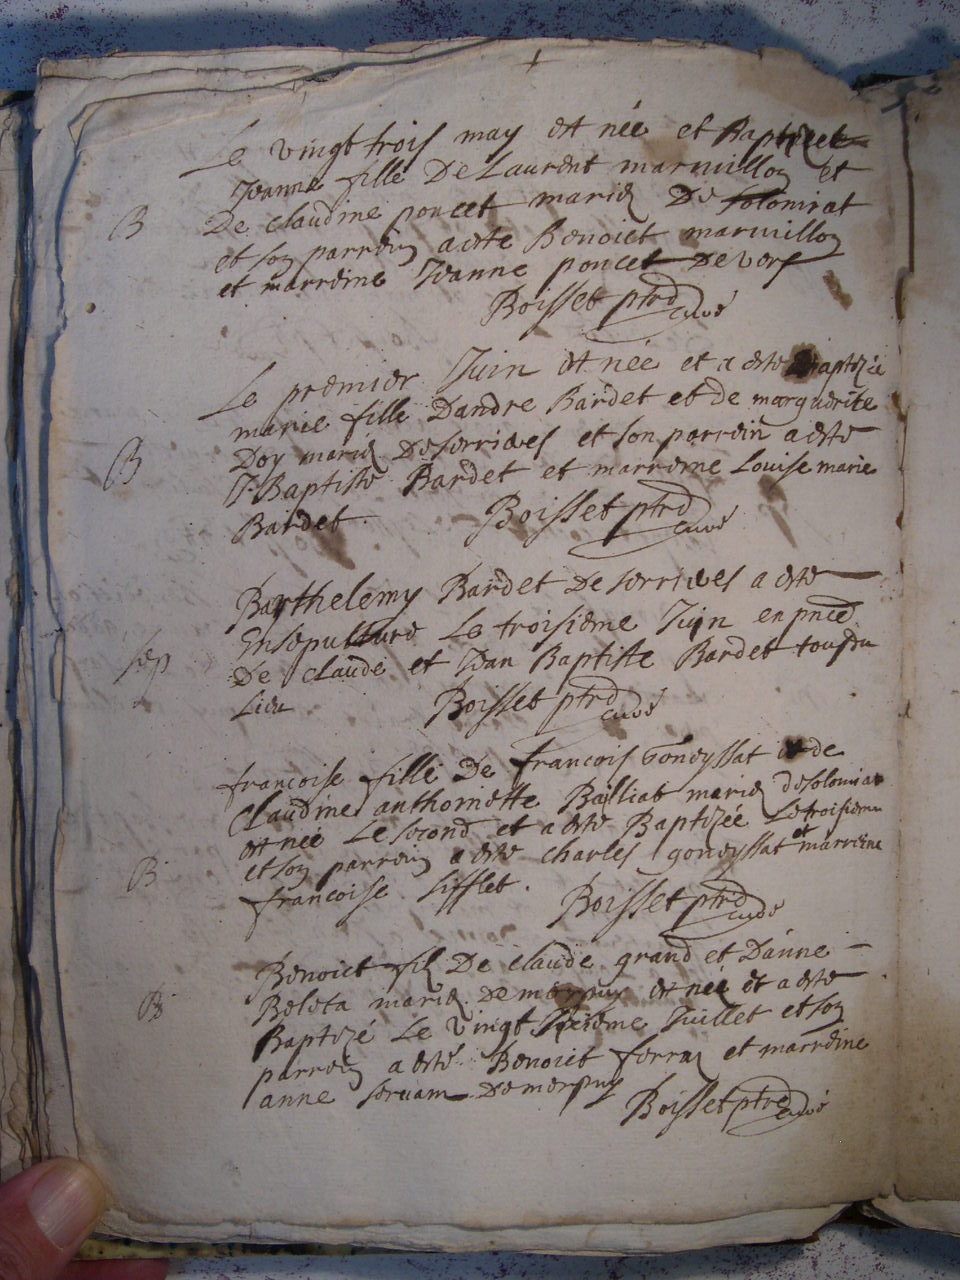 Le vingt trois may est née et Baptizée
Jeanne fille De Laurent marmillon et
B De claudine poncet mariez De solomiat
et son parrein a este Benoiet marmillon
et marreine Jeanne poncet De vers
Boisset ptre curé
Le premier Juin est née et a este Baptizée
marie fille Dandre Bardet et de marguerite
B Doy mariez De serrieves et son parrein a este
J. Baptiste Bardet et marreine Louise marie
Bardet Boisset ptre curé
Barthelemy Bardet De serrieves a este
sep Ensepulturé Le troisieme Juin en pnce
De claude et Jean Baptiste Bardet tous du
Lieu Boisset ptre curé
francoise fille De francois Goneyssat et de
Claudine anthoinette Balliat mariez de solomiat
est née Le second et a este Baptizée Le troisieme
B et son parrein a este charles goneyssat et marreine
francoise sifflet. Boisset ptre curé
Benoict filz De claude grand et Danne
B Beleta mariez De merpuy est né et a este
Baptizé Le vingt Juillet et son
parrein a esté Benoiet ferraz et marreine
anne servam De merpuy Boisset ptre curé